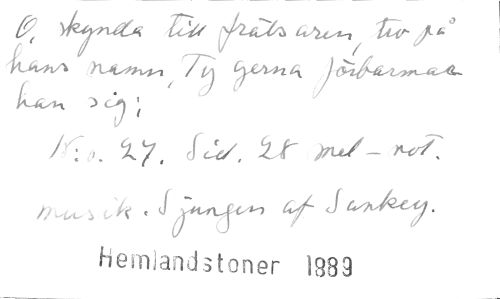 O, skynda till frälsaren, tro på
hans namn, Ty gerna förbarmar
han sig;
N:o. 27. Sid. 28 mel-not.
musik. Sjungen af Sankey.
Hemlandstoner 1889